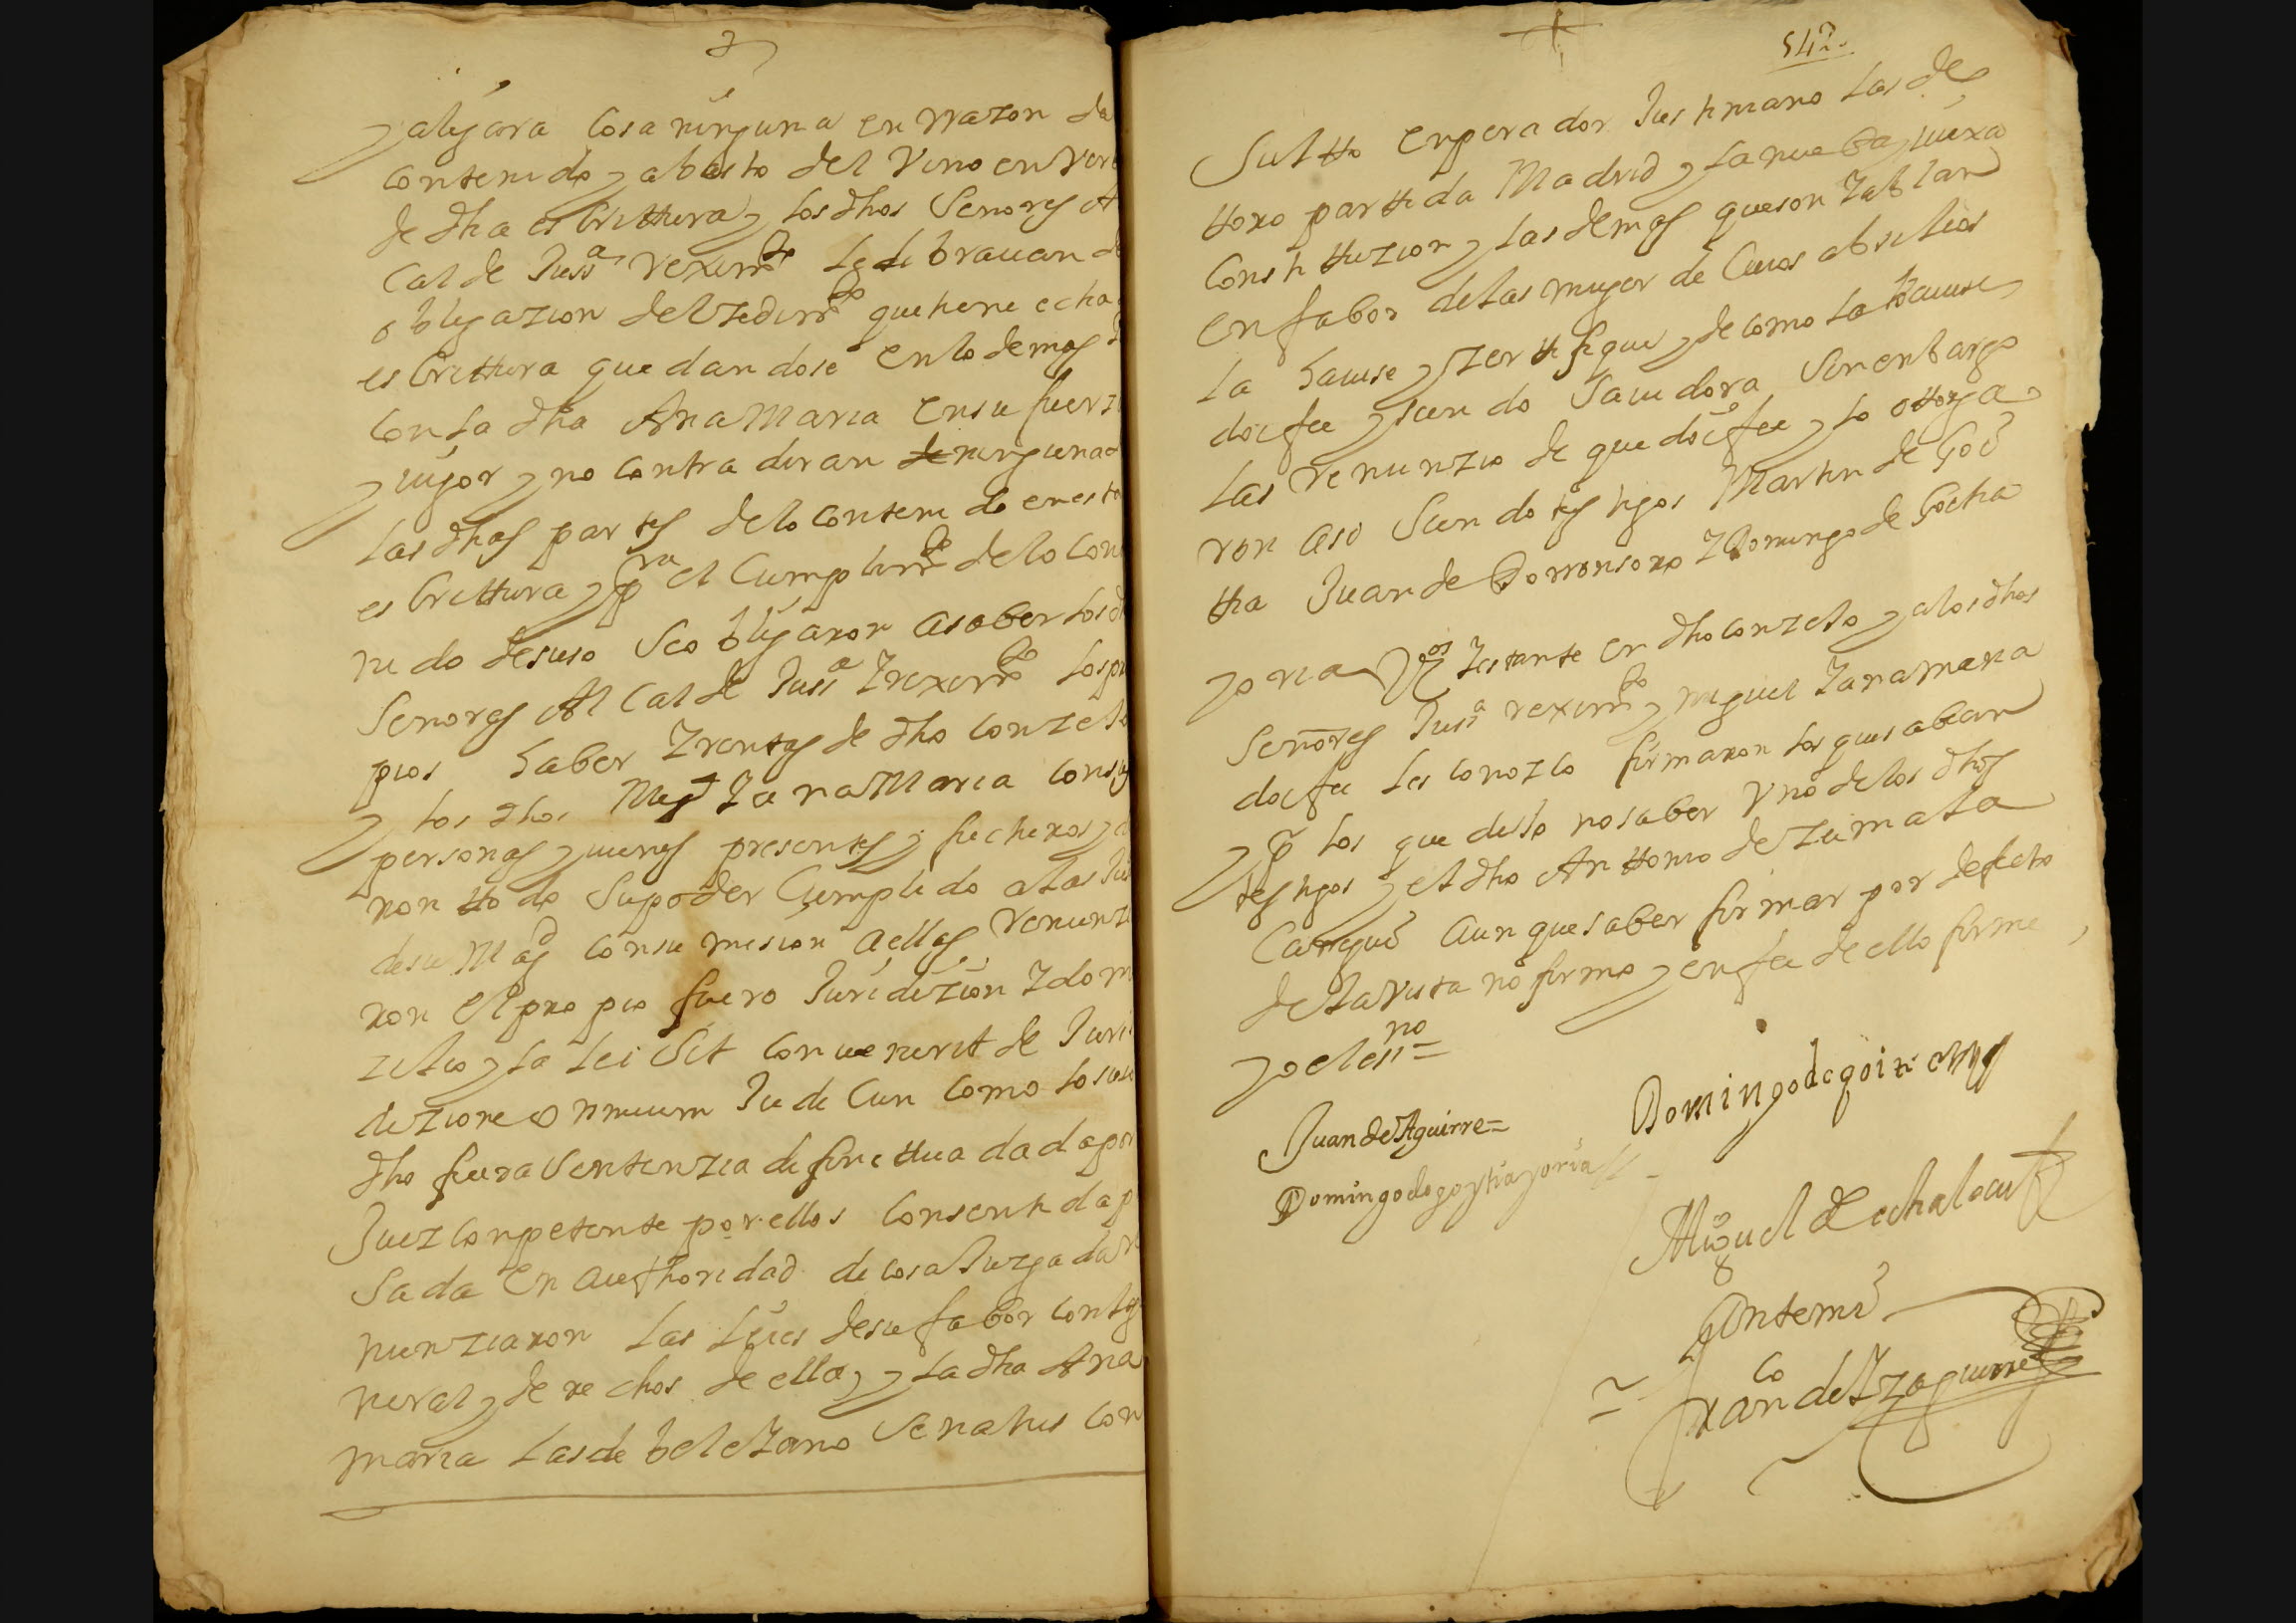 y alegara cosa ninguna en rrazon da
contenido y abasto del vino en vir
de dha escrittura y los dhos Senores Al
calde Jussª reximᵗᵒ le librauan de
obligazion del zedimᵗᵒ que tiene echa
escrittura quedandose en lo demas
con la dha Ana Maria en su fuerz
y uigor y no contradiran ninguna d
las dhas partes de lo contenido en esta
escrittura y pʳᵃ el Cumplimᵗᵒ de lo con
nido desuso se obligaron a saber los d
Senores Alcalde Jussª y reximᵗᵒ los pro
pios haber y rentas de dho conzelo
y los dhos Migˡ y ana Maria con sus
personas y uienes presentes y fucturos y d
ron tto do Su poder Cumplido a las Jus
de su Magᵈ con sumision a ellas renunzi
ron el propio fuero Juridizion y dom
zilio y la lei Sit conuenerit de Juris
dizione onmium Judicun como lo suso
dho fuera Sentenzia difinittiua dada por
Juez conpetente por ellos consentida pa
sada en authoridad de cosa Juzgada re
nunziaron las leies de su fabor con la ge
neral y derechos de ella y la dha Ana
maria las de beleZano Senatus con
542.
Sultto enperador Justiniano las de
ttoro partida Madrid y la nueba y uiexa
Constituzion y las demas que son y ablan
en fabor de las mujer de Cuios absilios
la hauise y zertifique y de como la hauise
doi fee y siendo Sauidora Sin enbargo
las renunzio de que doi fee y lo ottorga
ron asi Siendo tesˢ tigos Martin de Goi
ttia Juan de Dorronsoro y Domingo de Goitia
yoria Vᶻᵒˢ y estante en dho conzelo y a los dhos
Señores Jussª reximᵗᵒ y miguel y ana maria
doi fee les conozco firmaron los que sabian
y p los que dixo no saber vno de los dhos
testigos y el dho Anttonio de zumata
Caregui aunque saber firmar por defecto
de la vista no firmo y en fee de ello firme
yo el essⁿᵒ =
Juan de Aguirre =
Domingo de goitia
Domingo de goytia yoria
Miguel de echalecu
Antemi
Franᶜᵒ de Yzaguirre